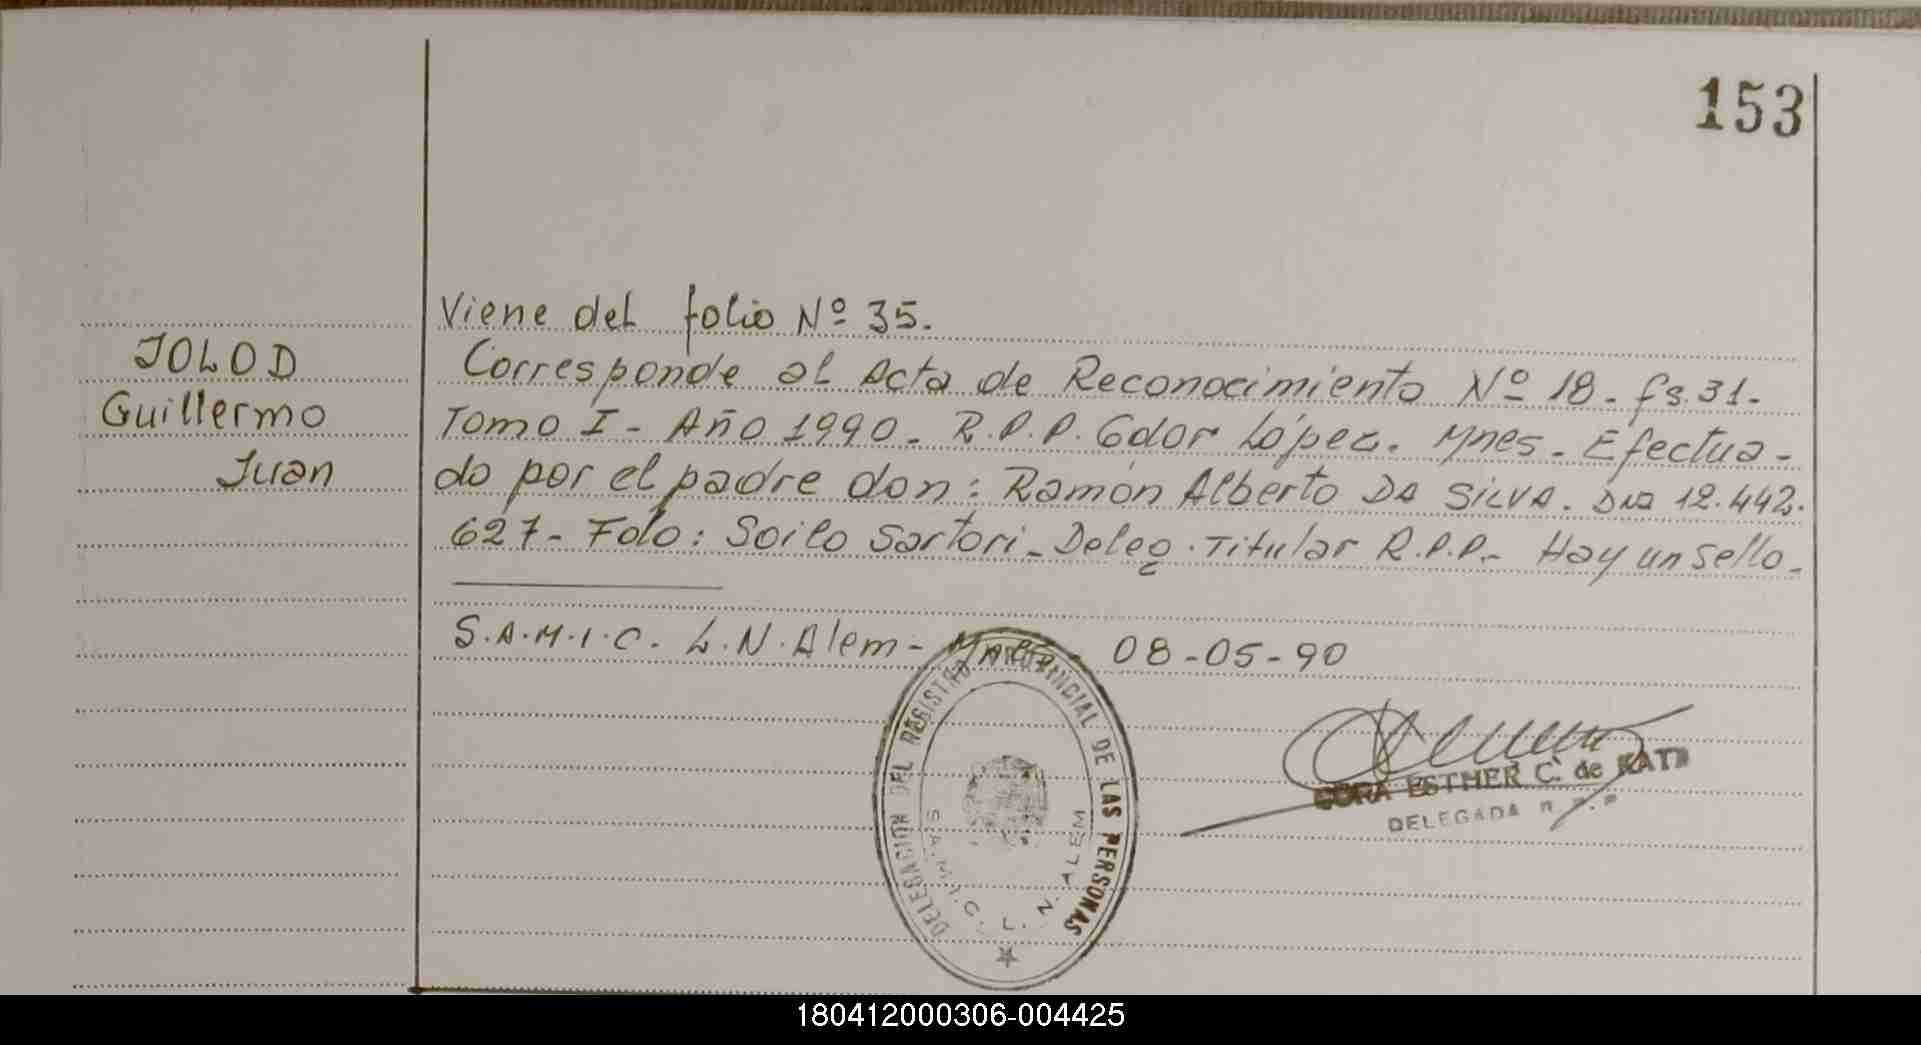 153
JOLOD
Guillermo
Juan
Viene del folio Nº 35.
Corresponde al Acta de Reconocimiento Nº 18. fs. 31.
Tomo I - Año 1990. R.P.P. Gdor López. Mnes. Efectua-
do por el padre don: Ramón Alberto DA SILVA. DNI 12.442.
627 - Fdo: Soilo Sartori - Deleg. Titular R.P.P. - Hay un sello.
S.A.M.I.C. L.N. Alem - 08-05-90
DELEGACION DEL REGISTRO PROVINCIAL DE LAS PERSONAS
S.A.M.I.C. L. N. ALEM
CORA ESTHER C. de
DELEGADA
180412000306-004425